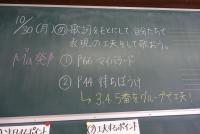 10/30(月) め 歌詞をもとにして、自分たちで
表現の工夫をして歌おう。
① P66 マイバラード
② P44 待ちぼうけ
↳ 3.4.5番をグループで工夫!
工夫するポイント